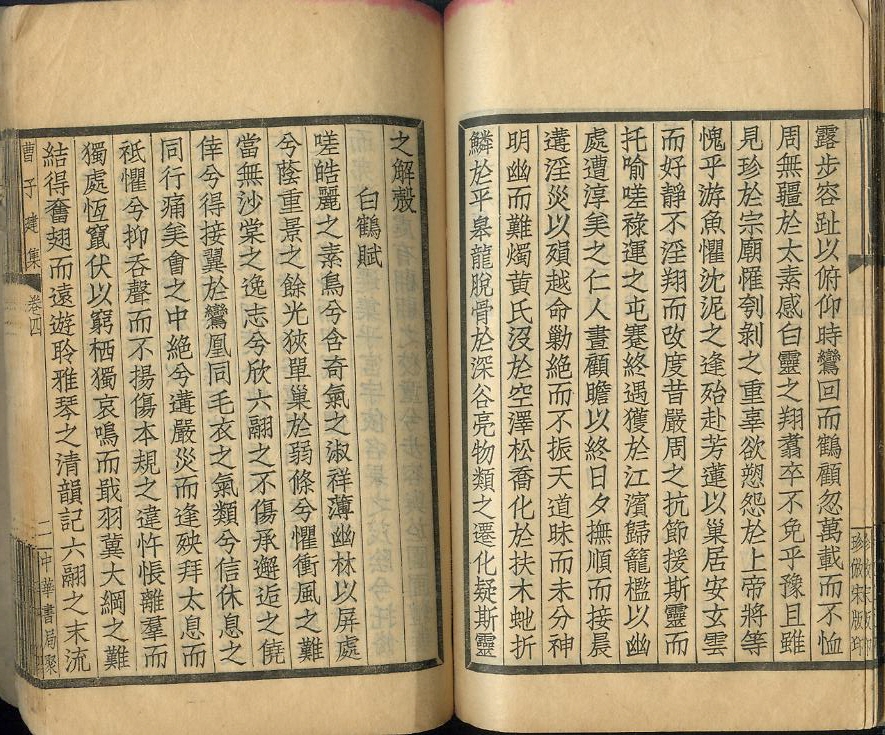 露步容趾以俯仰時鸞回而鶴顧忽萬載而不恤
周無疆於太素感白靈之翔翥卒不免乎豫且雖
見珍於宗廟惟刳剝之重辜欲愬怨於上帝將等
愧乎游魚懼沈泥之逢殆赴芳蓮以巢居安玄雲
而好靜不淫翔而改度昔嚴周之抗節援斯靈而
托喻嗟祿運之屯蹇終遇獲於江濱歸籠檻以幽
處遭淳美之仁人晝顧瞻以終日夕撫順而接晨
遘淫災以殞越命勦絕而不振天道昧而未分神
明幽而難燭黃氏沒於空澤松喬化於扶木虵折
鱗於平臯龍脫骨於深谷亮物類之遷化疑斯靈
珍倣宋版印
之解殼
白鶴賦
嗟皓麗之素鳥兮含奇氣之淑祥薄幽林以屏處
兮蔭重景之餘光狹單巢於弱條兮懼衝風之難
當無沙棠之逸志兮欣六翮之不傷承邂逅之僥
倖兮得接翼於鸞凰同毛衣之氣類兮信休息之
同行痛美會之中絕兮遘嚴災而逢殃拜太息而
祗懼兮抑吞聲而不揚傷本規之違忤悵離羣而
獨處恆竄伏以窮栖獨哀鳴而戢羽冀大綱之難
結得奮翅而遠遊聆雅琴之清韻記六翮之末流
曹子建集 卷四 二 中華書局聚